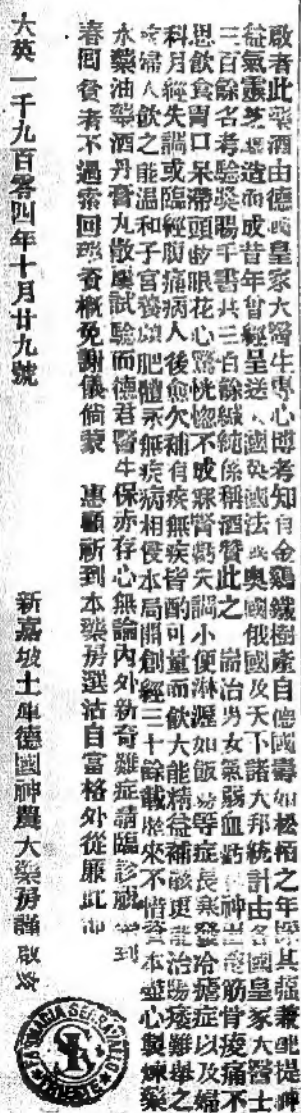 啟者此藥酒由德國皇家大醫生專心博考知有金鷄鐵樹產自德國壽如松栢之年採其强兼能提神
益氣靈芝煆造而成昔年曾經呈送入國英國法國奧國俄國及天下諸大邦統計由各國皇家大醫士
三百餘名考驗奬賜千書共三百餘緘純係稱酒贊此之 崙治男女氣弱血虧 神 筋骨痠痛不
思飲食胃口呆滯頭眩眼花心驚恍惚不成寐腎虧失調小便淋瀝如飯 等症長寒發冷瘧症以及婦
科月經失調或臨經腹痛病人後愈欠補有疾無疾皆酌可量而飲大能精益補 更能治陽痿難舉之
婦人飲之能温和子宮發 肥體永無疾病相侵本局開創經三十餘載歷來不惜資本虛心製煉藥
水藥油藥酒丹膏丸散屢試驗而德君醫生保赤存心無論內外新奇難症請臨診視 到
春囘 者不過索回 資概免謝儀倘蒙 惠顧祈到本藥房選沽自當格外從廉此佈
大英一千九百零四年十月廿九號
新嘉坡土庫德國神農大藥房謹啟
FARMACIA SERRAVALLO
TRIESTE